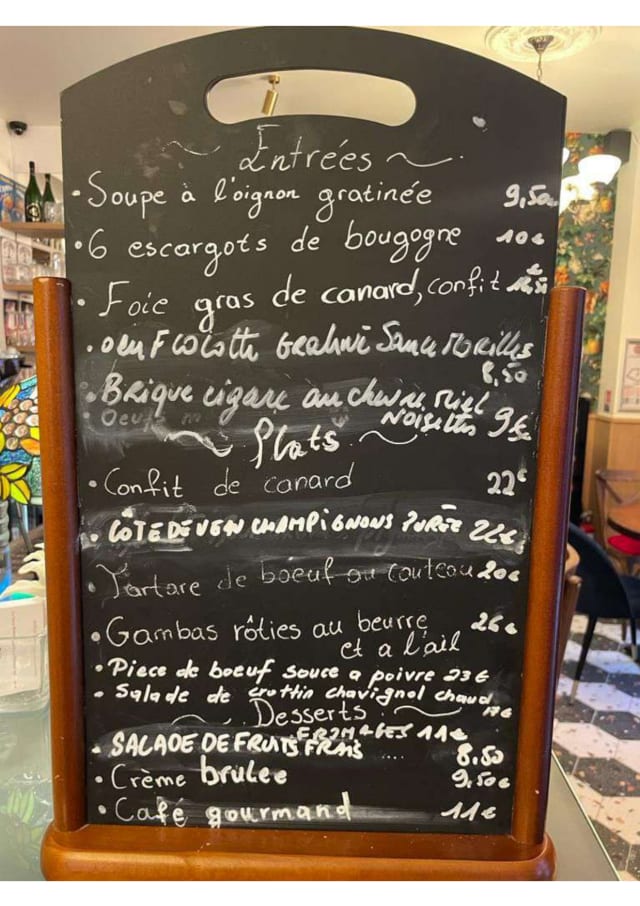 Entrées
• Soupe à l'oignon gratinée 9,50
• 6 escargots de bougogne 10€
• Foie gras de canard, confit
• oeuf cocotte Sauce MORilles
8,50
• Brique cigare au chevre Miel
Oeuf NOiSettes 9€
Plats
• Confit de canard 22€
• CÔTE DE VEAU CHAMPiGNONS PURÉE 22€
• Tartare de boeuf au couteau 20€
• Gambas rôties au beurre 26€
et a l'ail
• Piece de boeuf souce a poivre 23€
• Salade de crottin chavignol chaud
17€
Desserts
FROMAGES 11€
• SALADE DE FRUITS FRAIS .... 8.50
• Crème brulee 9,50€
• Café gourmand 11€